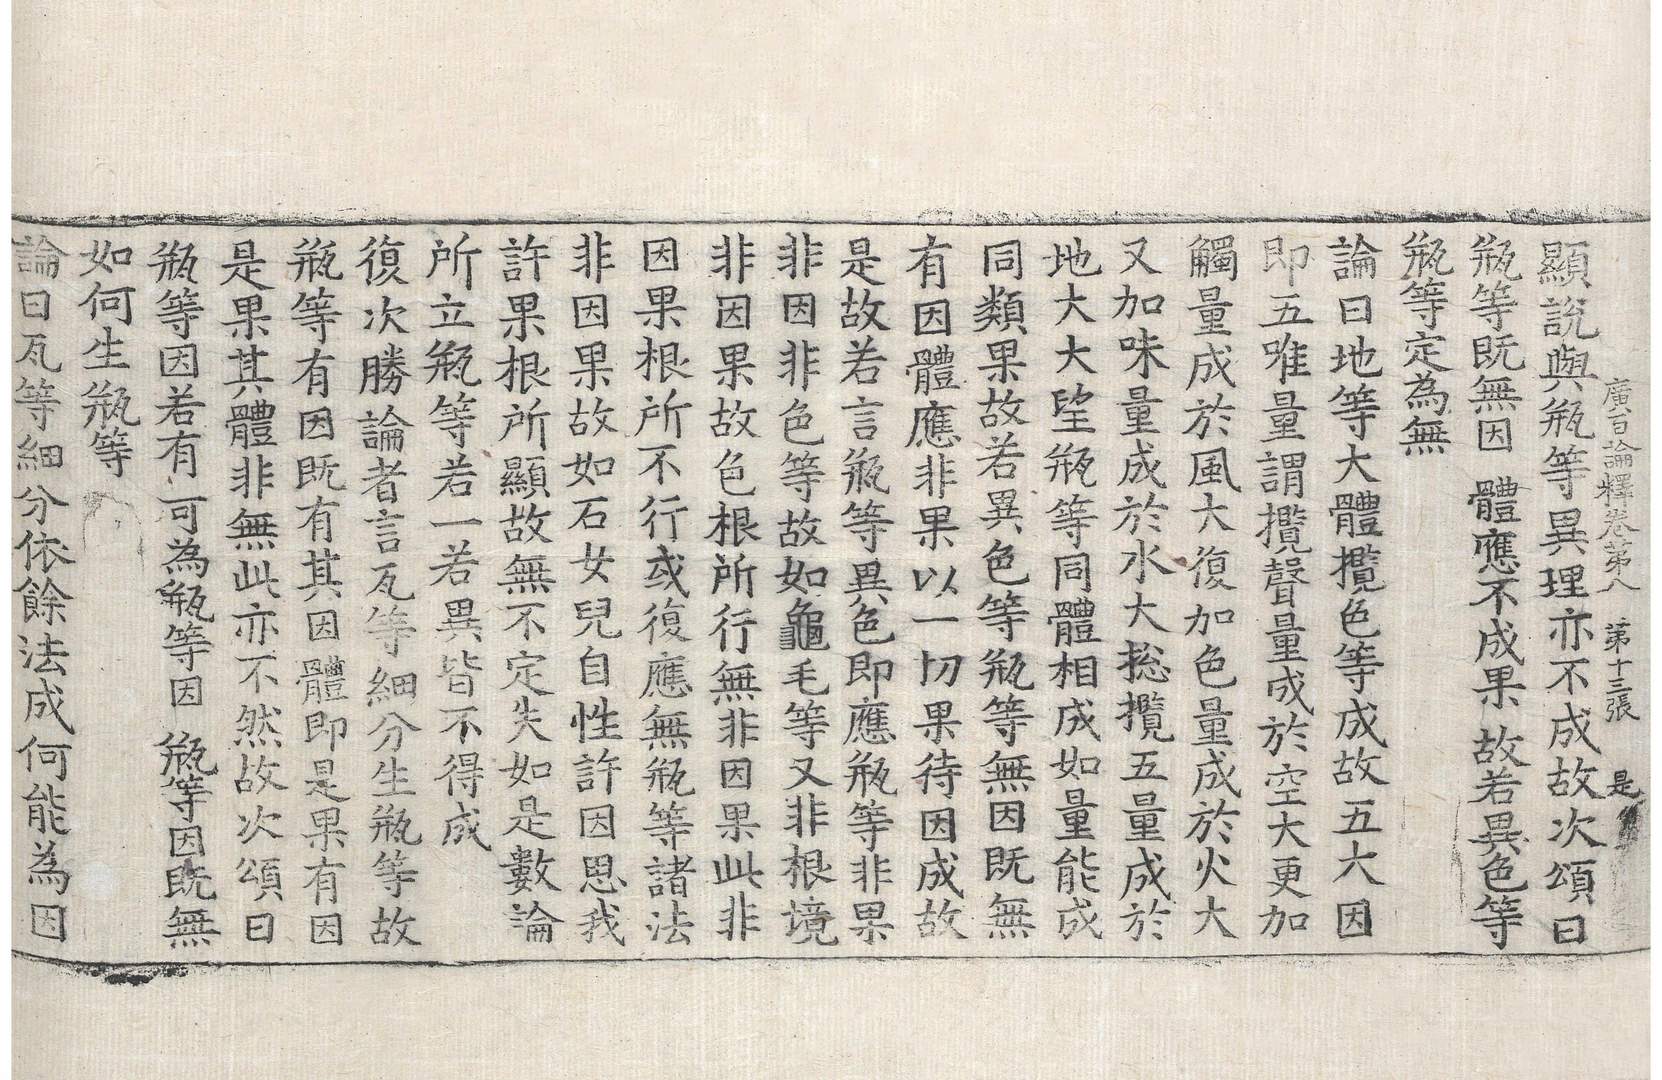 廣百論釋卷第八 第十三張 是
顯說與瓶等異理亦不成故次頌曰
瓶等既無因 體應不成果 故若異色等
瓶等定為無
論曰地等大體攬色等成故五大因
即五唯量謂攬聲量成於空大更加
觸量成於風大復加色量成於火大
又加味量成於水大捴攬五量成於
地大大望瓶等同體相成如量能成
同類果故若異色等瓶等無因既無
有因體應非果以一切果待因成故
是故若言瓶等異色即應瓶等非果
非因非色等故如龜毛等又非根境
非因果故色根所行無非因果此非
因果根所不行或復應無瓶等諸法
非因果故如石女兒自性許因思我
許果根所顯故無不定失如是數論
所立瓶等若一若異皆不得成
復次勝論者言瓦等細分生瓶等故
瓶等有因既有其因體即是果有因
是果其體非無此亦不然故次頌曰
瓶等因若有 可為瓶等因 瓶等因既無
如何生瓶等
論曰瓦等細分依餘法成何能為因